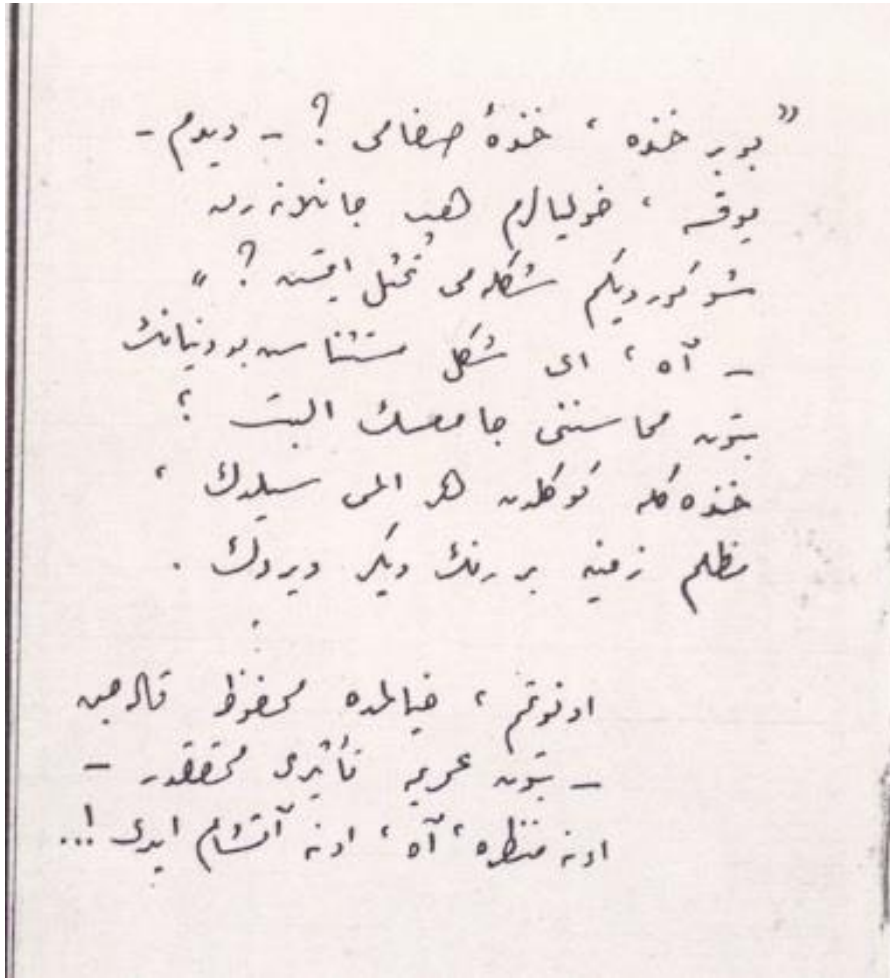 ” بو بر خنده ، خندهٔ صفامى ? - ديدم -
يوقسه ، خوليالرم هب جانلانه رق
شو كورديكم شكله مى تمثل ايتسه ? „
— آه ، اى شكل مستثنا سن بو دنيانك
بتون محاسننى جامعسك البت ؛
خنده كله كوكلدن هر المى سيلدك ،
مظلم زمينه بر رنك ديكر ويردك .
اونوتمم ، خيالمده محفوظ قاله جق
— بتون عمريمه تأثيرى محققدر —
او نه منظره ، آه ، او نه آقشام ايدى !..